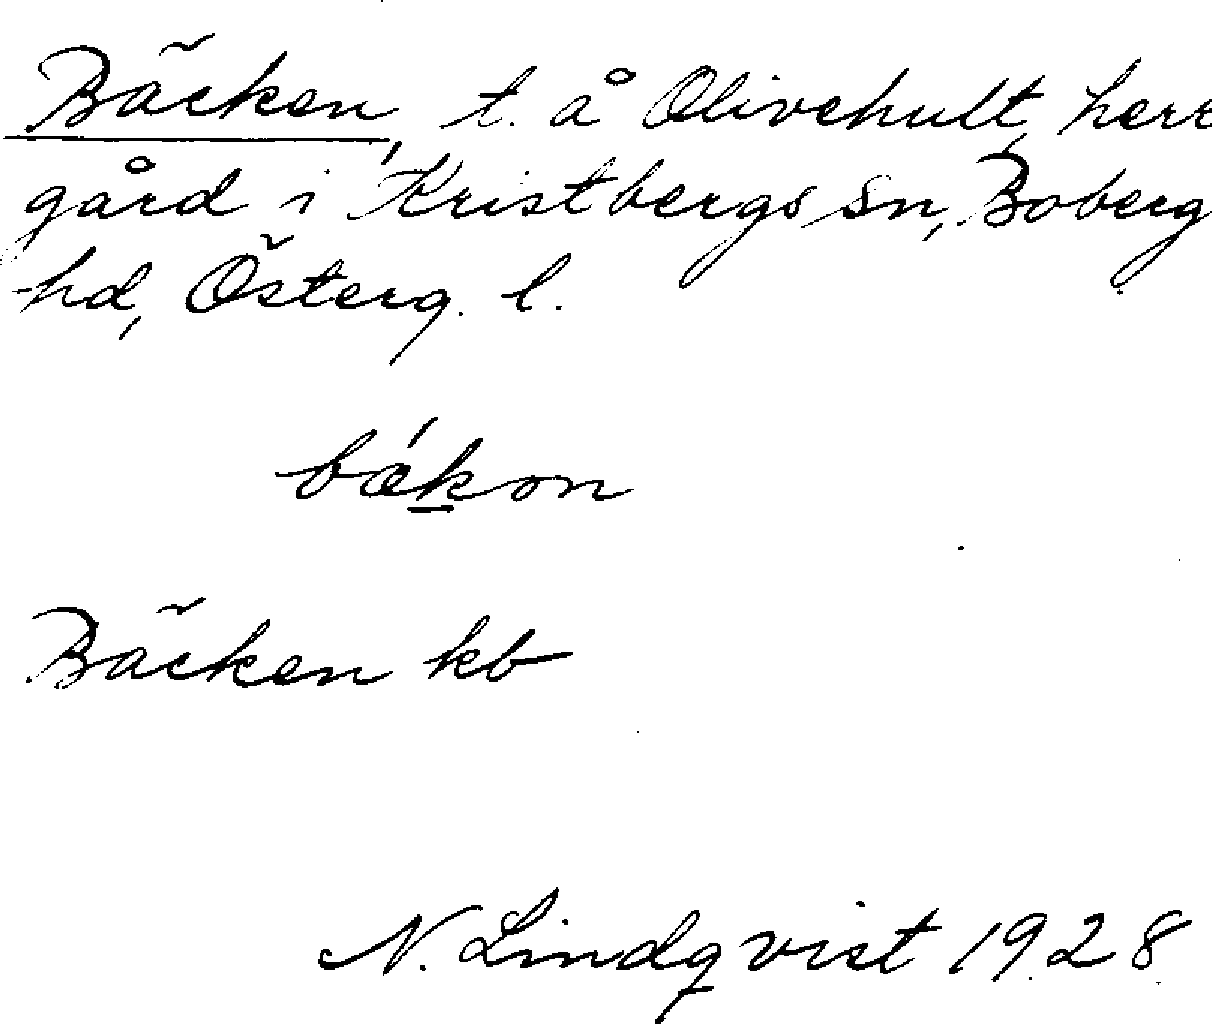 Bäcken, t. å Olivehult, herr
gård i Kristbergs sn, Boberg
hd, Österg. l.
bǽk̲on
Bäcken kb
N. Lindqvist 1928